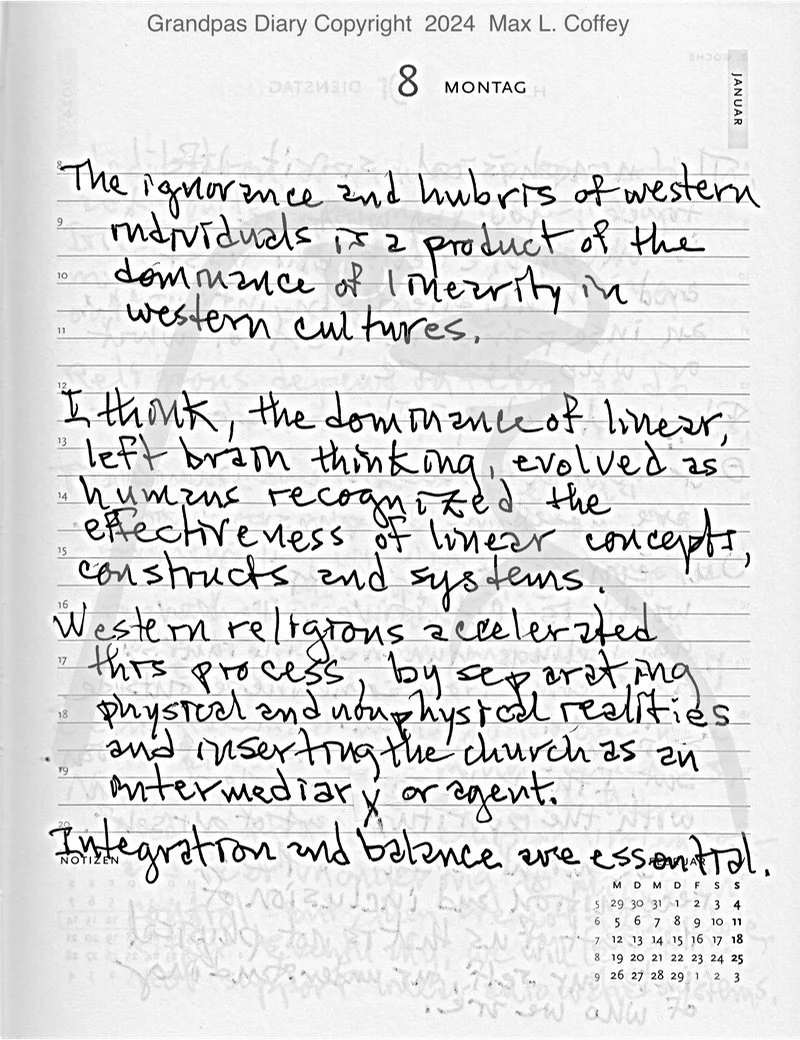 Grandpas Diary Copyright 2024 Max L. Coffey
8 MONTAG
JANUAR
8
The ignorance and hubris of western
9
individuals is a product of the
10
dominance of linearity in
11
western cultures.
12
I think, the dominance of linear,
13
left brain thinking, evolved as
14
humans recognized the
effectiveness of linear concepts,
15
constructs and systems.
16
Western religions accelerated
17
this process, by separating
18
physical and nonphysical realities
and inserting the church as an
19
intermediary or agent.
20
Integration and balance are essential.
NOTIZEN
FEBRUAR
M D M D F S S
5 29 30 31 1 2 3 4
6 5 6 7 8 9 10 11
7 12 13 14 15 16 17 18
8 19 20 21 22 23 24 25
9 26 27 28 29 1 2 3